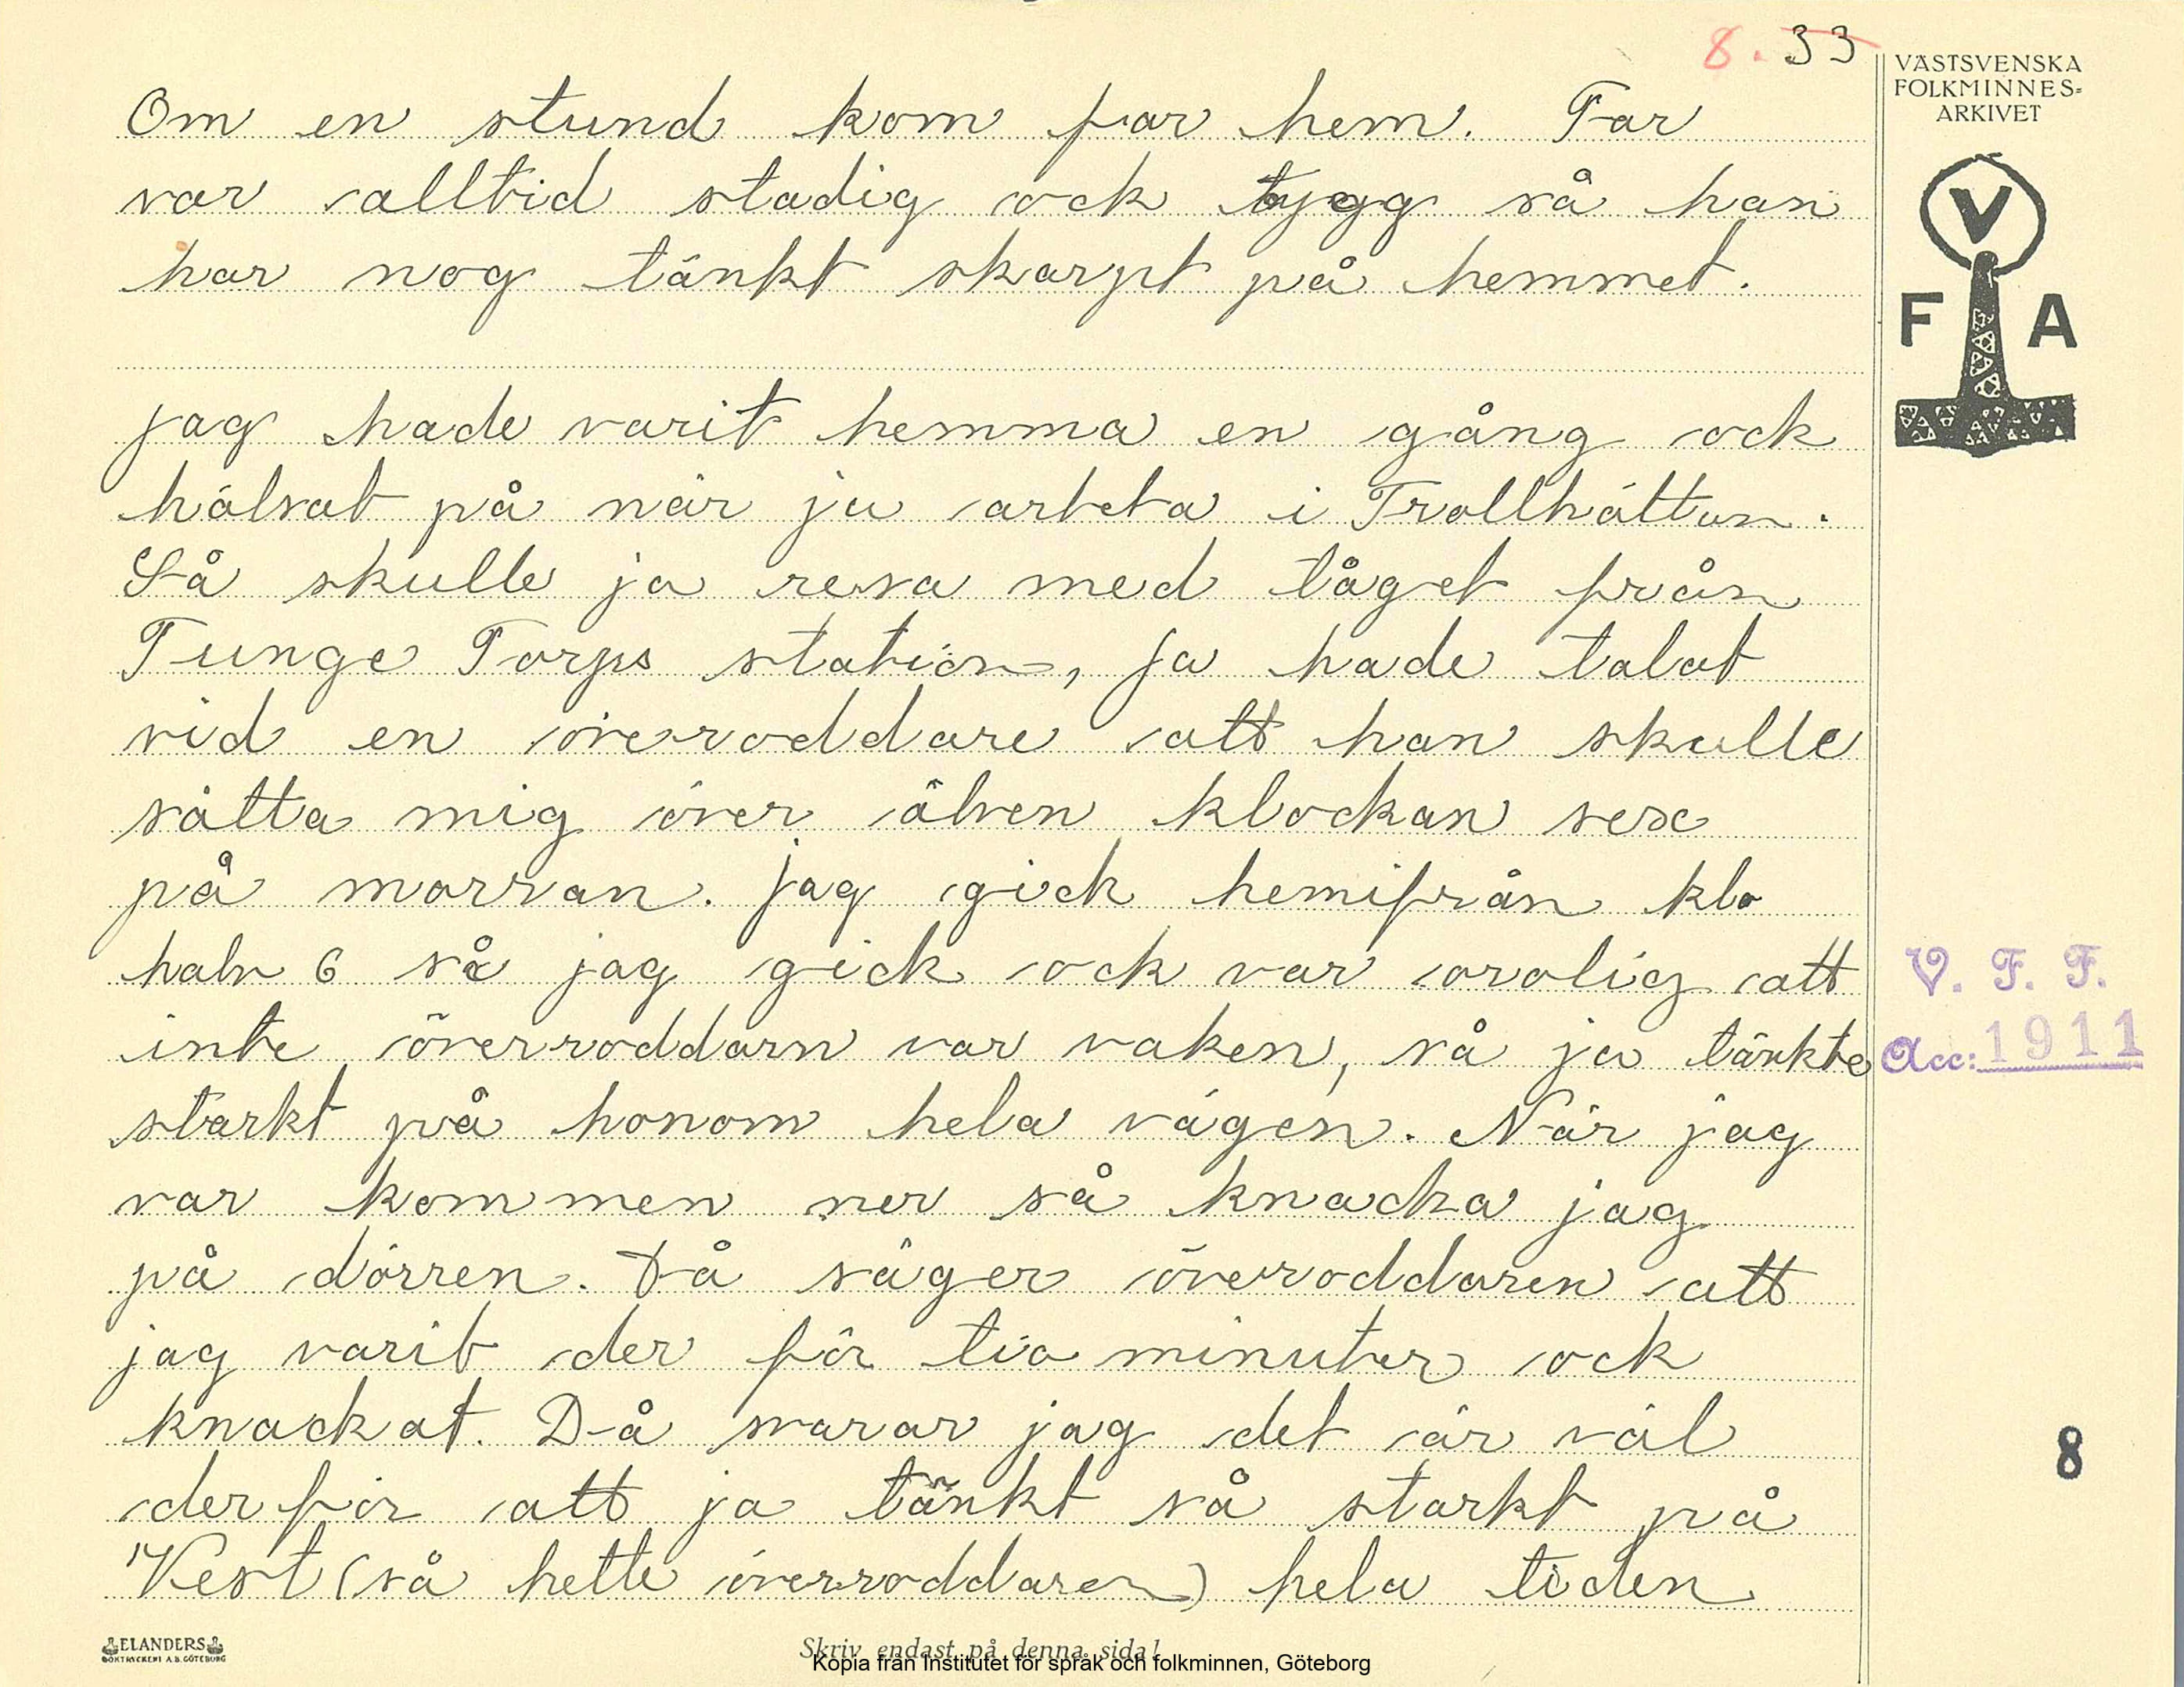 8. 33
VÄSTSVENSKA
FOLKMINNES-
ARKIVET
V
F A
Om en stund kom far hem. Far
var alltid stadig ock tygg så han
har nog tänkt skarpt på hemmet.
jag hade varit hemma en gång ock
hälsat på när ja arbeta i Trollhättan.
Så skulle ja resa med tåget från
Tunge Torps station, ja hade talat
vid en överoddare att han skulle
sätta mig över älven klockan sex
på morran. jag gick hemifrån klo
halv 6 så jag gick ock var orolig att
inte överroddarn var vaken, så ja tänkte
starkt på honom hela vägen. När jag
var kommen ner så knacka jag
på dörren. Då säger överoddaren att
jag varit der för tio minuter ock
knackat. Då svarar jag det är väl
derför att ja tänkt så starkt på
Vest (så hette överroddaren) hela tiden
V. F. F.
Acc: 1911
8
ELANDERS
BOKTRYCKERI A.B. GÖTEBORG
Skriv endast på denna sida!
Kopia från Institutet för språk och folkminnen, Göteborg